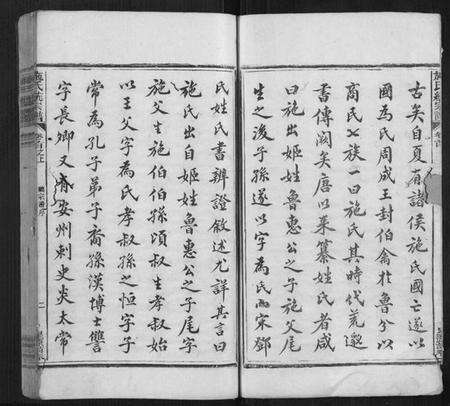 古矣自夏有諸侯施氏國亡遂以
國為氏周成王封伯禽於魯分以
商民七族一曰施氏其時代荒邈
書傳闕矣唐以來纂姓氏者咸
曰施出姬姓魯惠公之子施父尾
生之後子孫遂以字為氏而宋鄧
氏姓氏書辨證敘述尤詳其言曰
施氏出自姬姓魯惠公之子尾字
施父生施伯伯孫頃叔生孝叔始
以王父字為氏孝叔孫之恒字子
常為孔子弟子裔孫漢博士讐
字長卿又有安州刺史炎太常
二